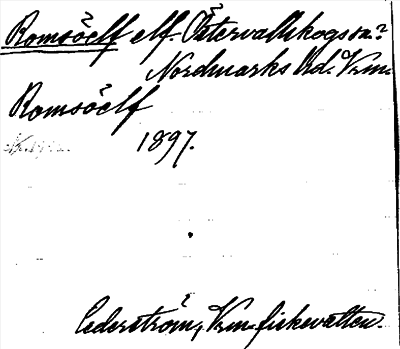 Romsöelf elf. Östervallskogs sn?
Nordmarks hd. Vrm.
Romsöelf
1897.
Cederström, Vrm. fiskevatten.